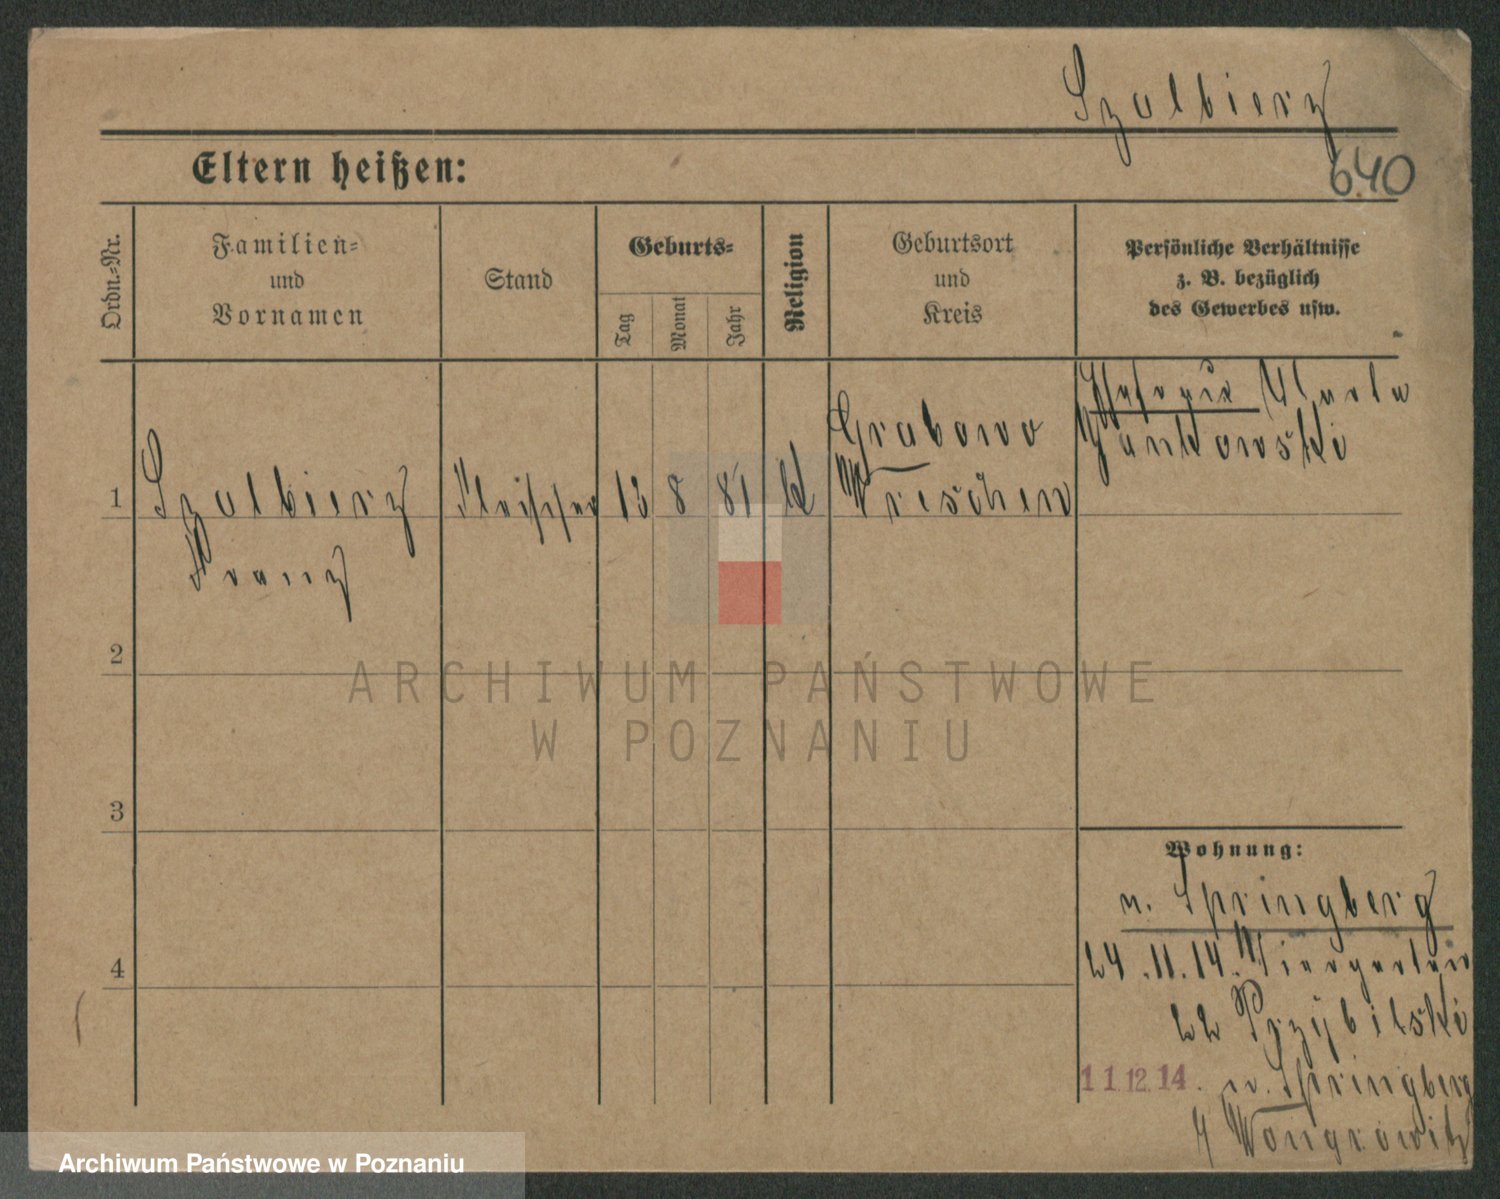 Szalbierz
640
Eltern heißen:
Ordn.-Nr.
Familien-
und
Vornamen
Stand
Geburts-
Tag
Monat
Jahr
Religion
Geburtsort
und
Kreis
Persönliche Verhältnisse
z. B. bezüglich
des Gewerbes usw.
1
Szalbierz
Franz
Fleischer
13
8
81
k
Grabowo
Wreschen
Marta
Jankowski
2
3
4
Wohnung:
n. Springberg
24.11.14. Tiergarten
22 Przybilski
11.12.14. n. Springberg
Wongrowitz
ARCHIWUM PAŃSTWOWE
W POZNANIU
Archiwum Państwowe w Poznaniu